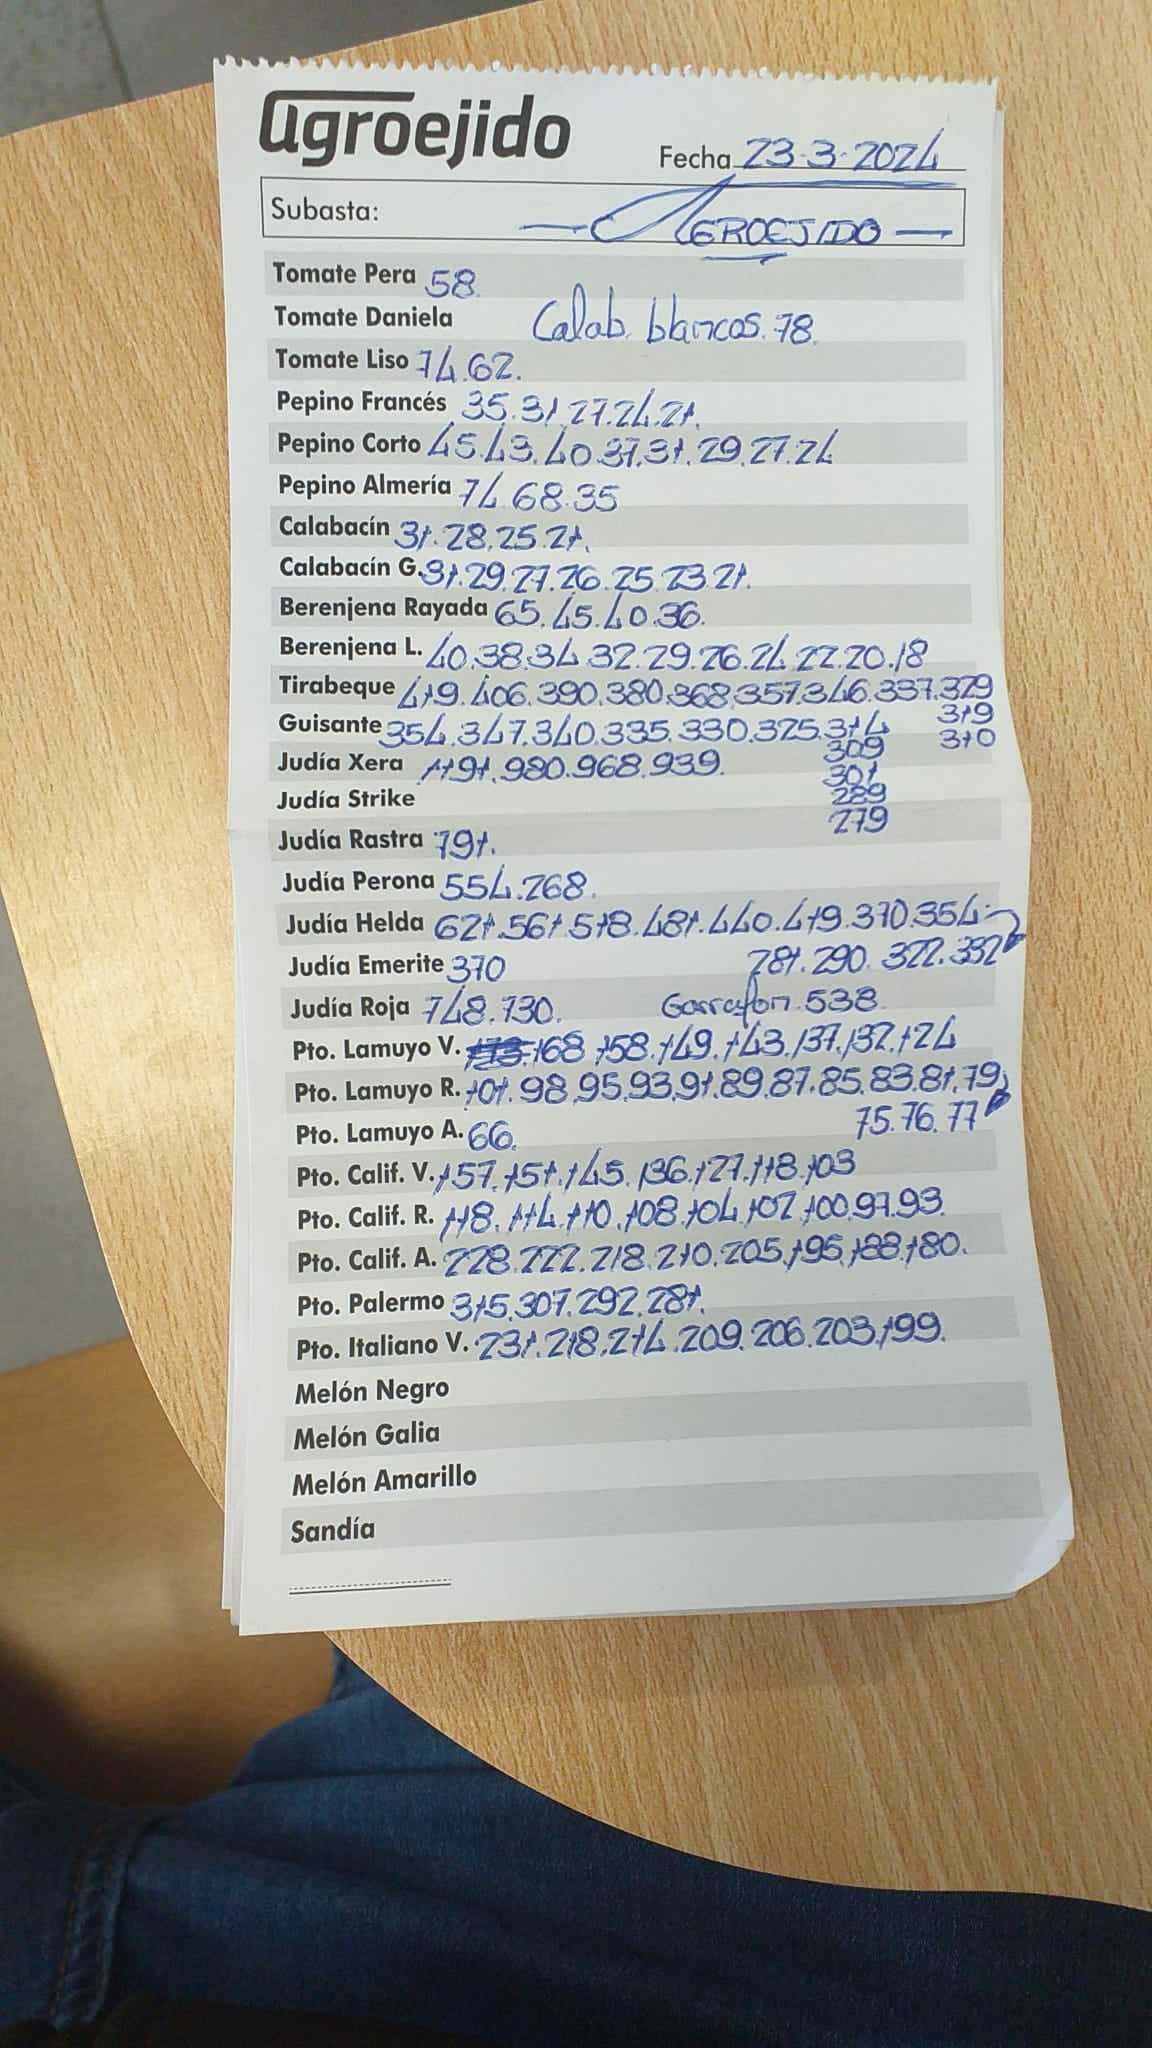 agroejido
Fecha 23-3-2024
Subasta: — AGROEJIDO —
Tomate Pera 58.
Tomate Daniela Calab. blancos. 78.
Tomate Liso 74.62.
Pepino Francés 35.31.27.24.21.
Pepino Corto 45.43.40.37.31.29.27.24
Pepino Almería 74.68.35
Calabacín 31.28.25.21.
Calabacín G. 31.29.27.26.25.23.21.
Berenjena Rayada 65.45.40.36.
Berenjena L. 40.38.34.32.29.26.24.22.20.18
Tirabeque 419.406.390.380.368.357.346.337.329
319
310
Guisante 354.347.340.335.330.325.314
309
301
289
279
Judía Xera 1191.980.968.939.
Judía Strike
Judía Rastra 791.
Judía Perona 554.268.
Judía Helda 621.561.518.481.440.419.370.354
281.290.322.332
Judía Emerite 370
Judía Roja 748.730. Garrafon 538.
Pto. Lamuyo V. 168.158.149.143.137.132.124
Pto. Lamuyo R. 101.98.95.93.91.89.87.85.83.81.79
75.76.77
Pto. Lamuyo A. 66.
Pto. Calif. V. 157.151.145.136.127.118.103
Pto. Calif. R. 118.114.110.108.104.102.100.97.93.
Pto. Calif. A. 228.222.218.210.205.195.188.180.
Pto. Palermo 315.307.292.281.
Pto. Italiano V. 231.218.214.209.206.203.199.
Melón Negro
Melón Galia
Melón Amarillo
Sandía